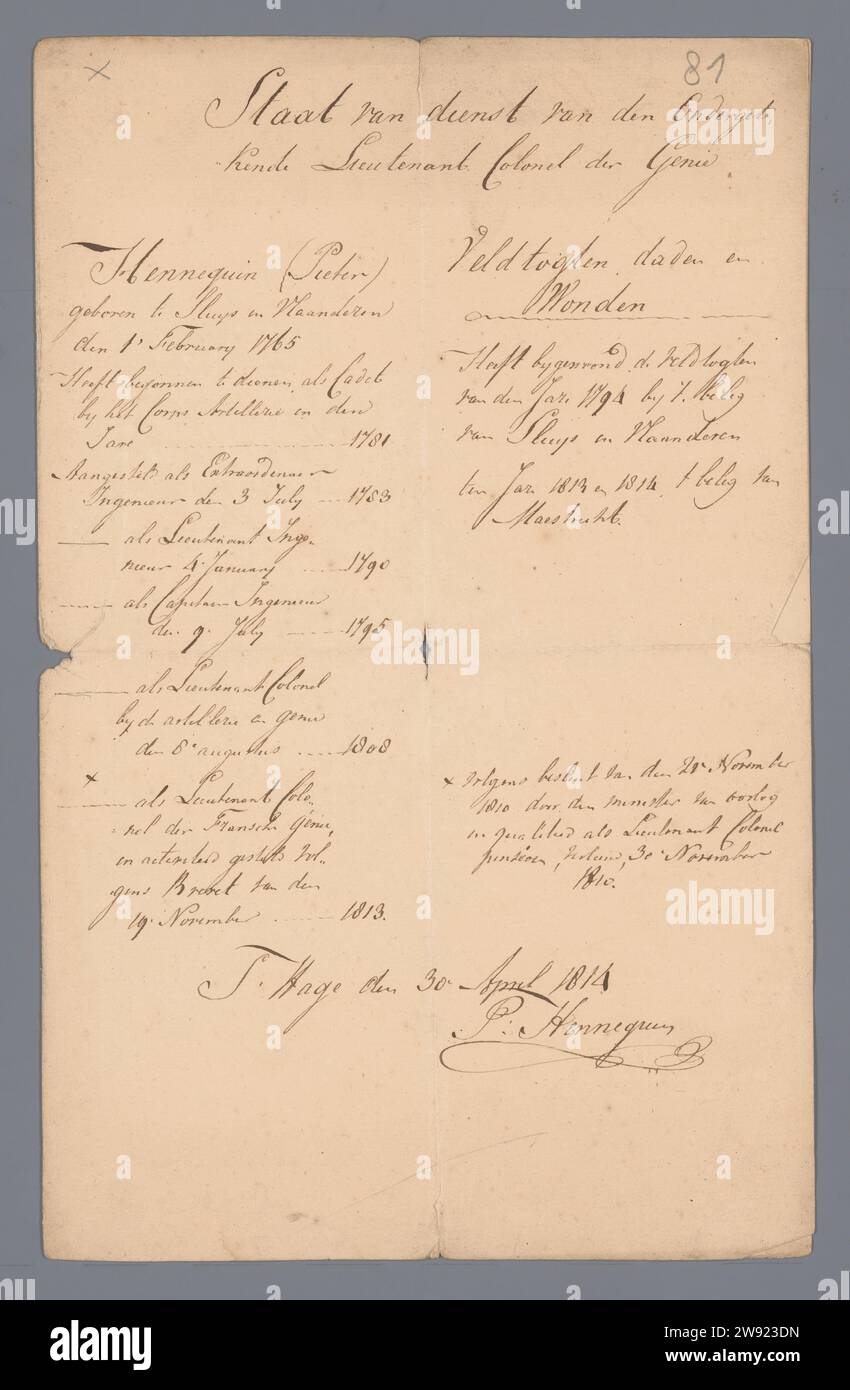 81
Staat van dienst van den Ondergete
kende Lieutenant Colonel der Genie
Hennequin (Pieter)
geboren te Sluys in Vlaanderen
den 1e February 1765
Heeft begonnen te dienen als Cadet
by het Corps Artillerie in den
Jare 1781
Aangesteld als Extraordinair
Ingenieur den 3 July 1783
als Lieutenant Inge-
nieur 4 January 1790
als Capitain Ingenieur
den 9. July 1795
als Lieutenant Colonel
by de artillerie en genie
den 8e augustus 1808
x
als Lieutenant Colo-
nel der Fransche Génie,
in activiteid gesteld vol-
gens Brevet van den
19. November 1813.
Veldtogten daden en
Wonden
Heeft bygewoond de veldtogten
van den Jare 1794 by 't beleg
van Sluys in Vlaanderen
ten Jare 1813 en 1814, 't beleg van
Maestricht.
x volgens besluit van den November
1810 door den minister van oorlog
in qualiteid als Lieutenant Colonel
pensioen 30e November
1810.
S. Hage den 30e April 1814
P: Hennequin
alamy
alamy
Image ID: 2W923DN
www.alamy.com